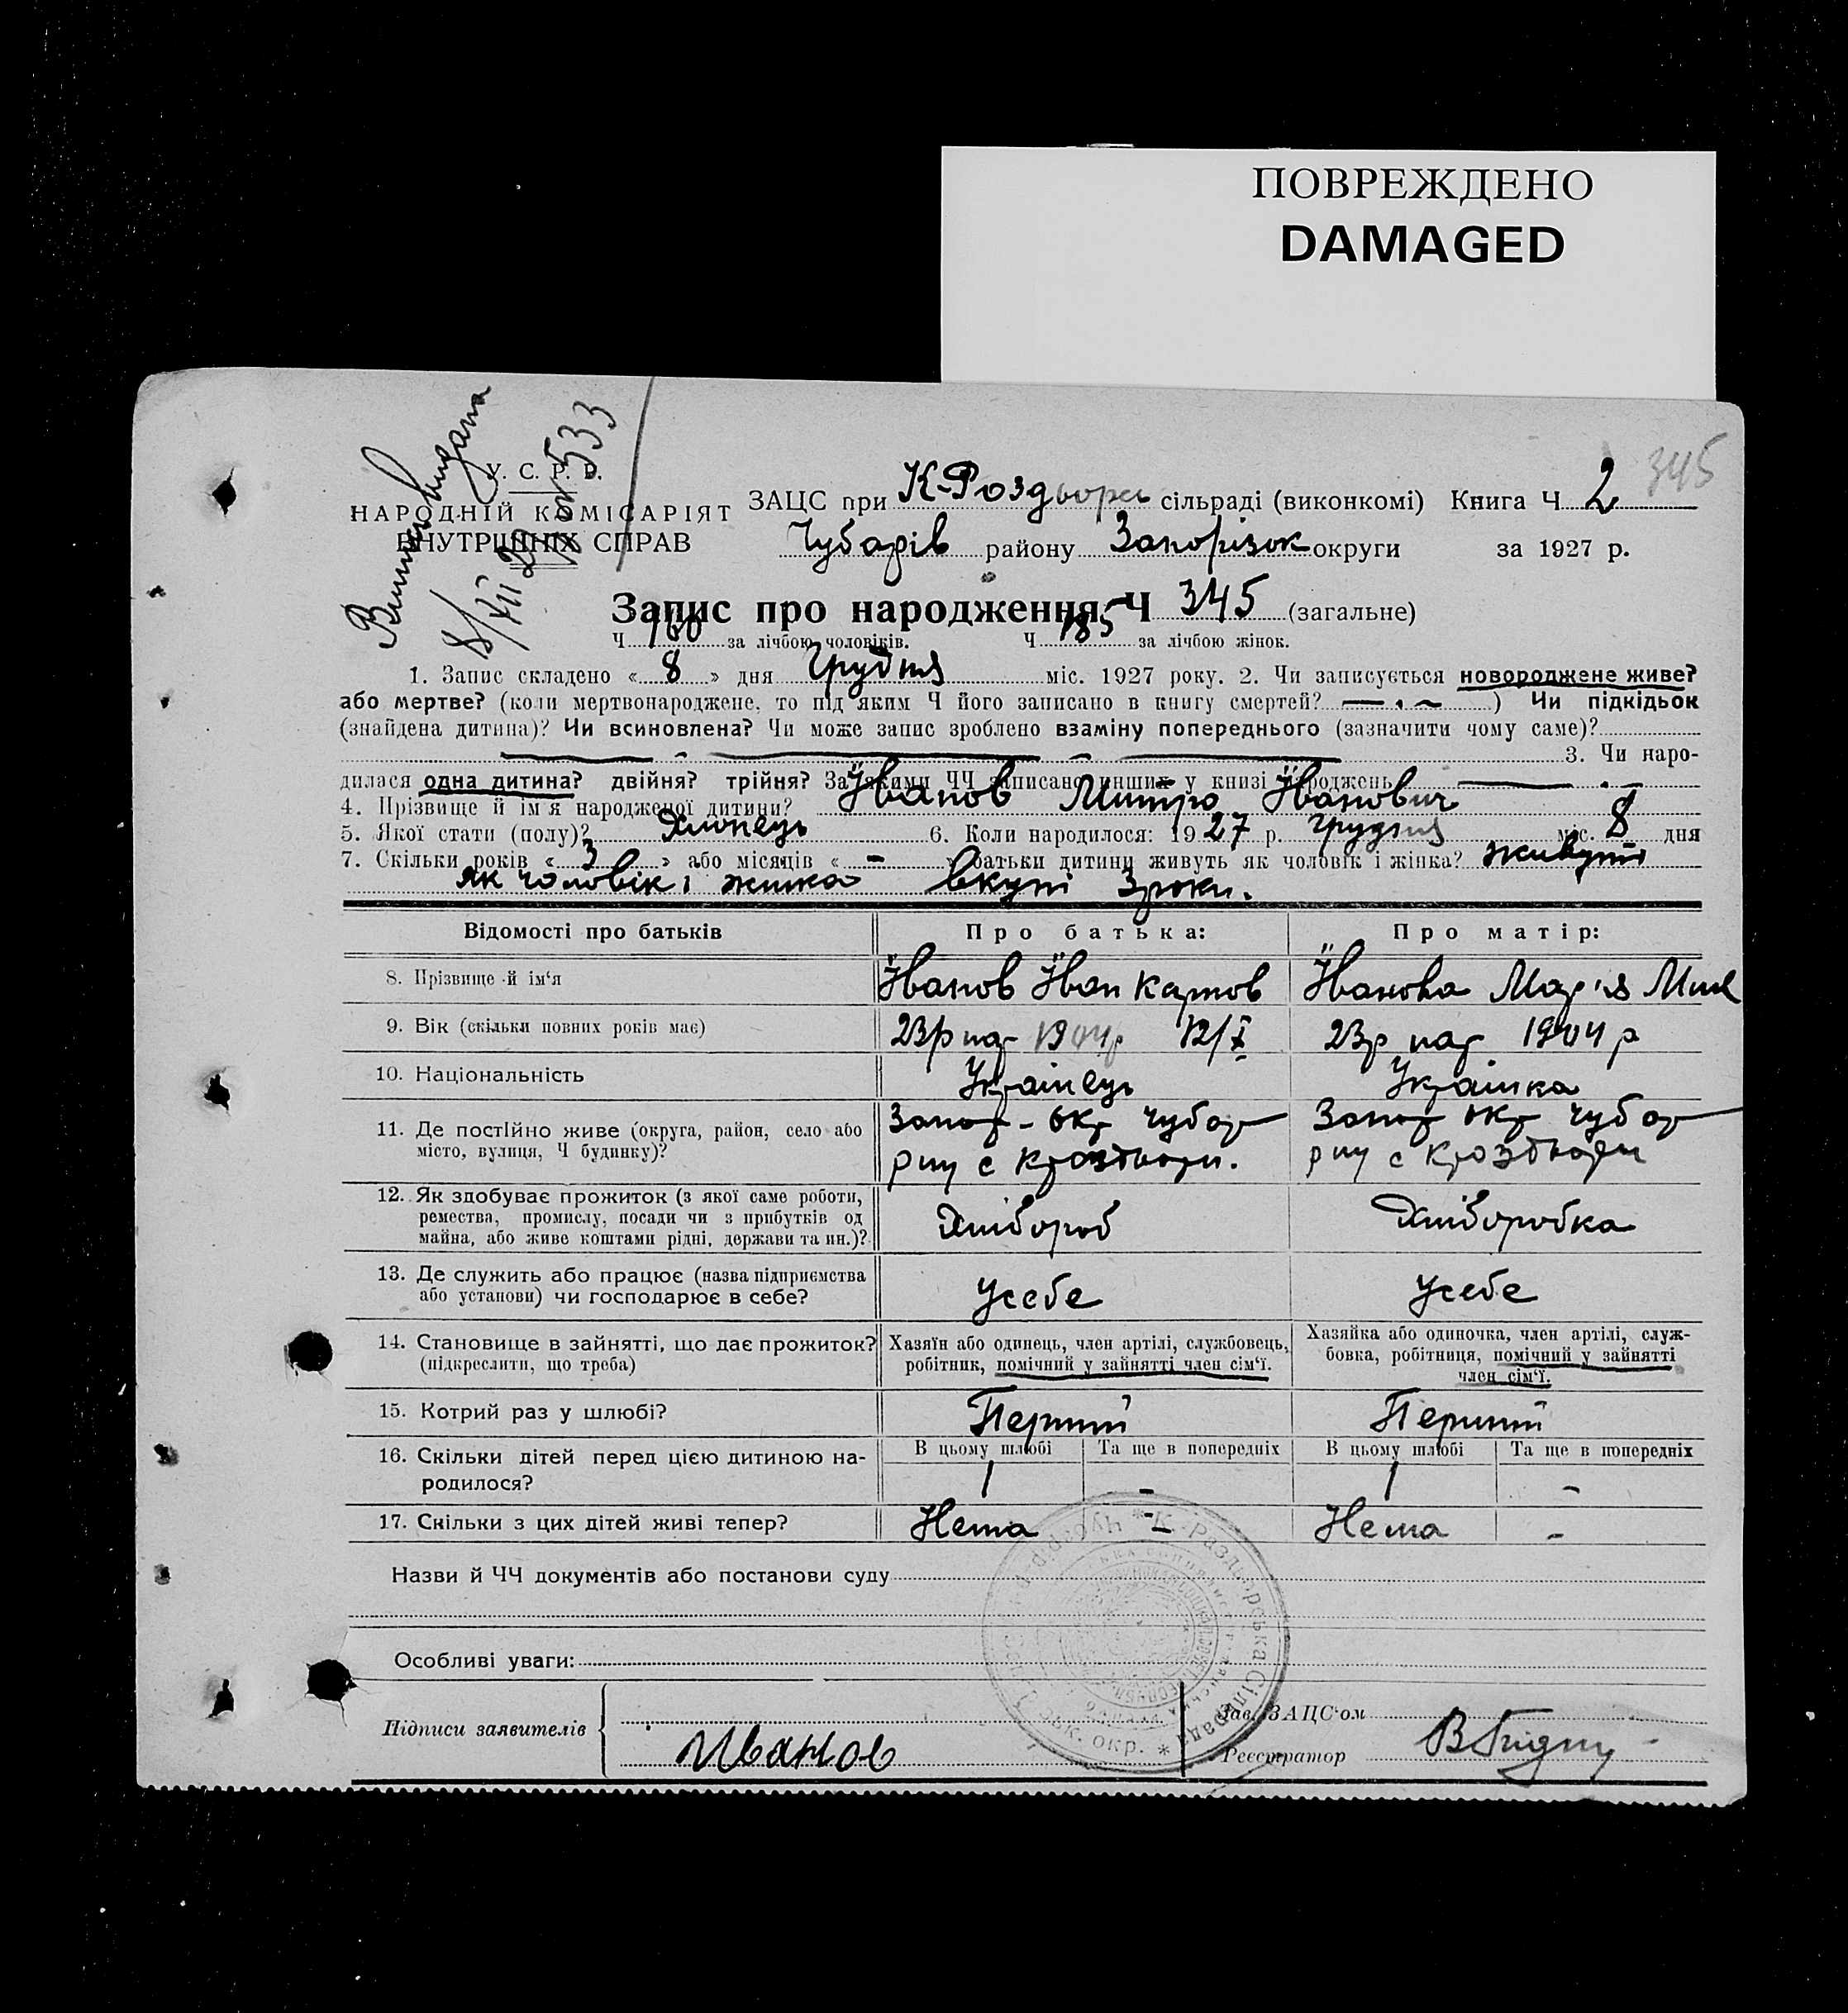 ПОВРЕЖДЕНО
DAMAGED
345
У. С. Р. Р.
НАРОДНІЙ КОМІСАРІЯТ
ВНУТРІШНІХ СПРАВ
видана
8/XII 27 № 533
ЗАЦС при К-Роздорах сільраді (виконкомі) Книга Ч 2
Чубарів району Запорізок округи за 1927 р.
Запис про народження Ч 345 (загальне)
Ч 160 за лічбою чоловіків. Ч 185 за лічбою жінок.
1. Запис складено « 8 » дня Грудня міс. 1927 року. 2. Чи записується новороджене живе?
або мертве? (коли мертвонароджене, то під яким Ч його записано в книгу смертей? — . ~ ) Чи підкідьок
(знайдена дитина)? Чи всиновлена? Чи може запис зроблено взаміну попереднього (зазначити чому саме)?
3. Чи наро-
дилася одна дитина? двійня? трійня? За якими ЧЧ записано инших у книзі народжень
4. Прізвище й ім'я народженої дитини? Іванов Митро Іванович
5. Якої стати (полу)? Хлопець 6. Коли народилося: 1927 р. грудня міс. 8 дня
7. Скільки років « 3 » або місяців « - » батьки дитини живуть як чоловік і жінка? живуть
як чоловік і жинка вкупі 3 роки.
Відомості про батьків Про батька: Про матір:
8. Прізвище й ім'я Іванов Іван Карпов Іванова Мар'я Мих
9. Вік (скільки повних років має) 23р нар 1904р 12/X 23р нар 1904 р
10. Національність Українець Українка
11. Де постійно живе (округа, район, село або
місто, вулиця, Ч будинку)?
Запор - окр чубар Запор окр чубар
рну с Кроздори. рну с Кроздори
12. Як здобуває прожиток (з якої саме роботи,
ремества, промислу, посади чи з прибутків од
майна, або живе коштами рідні, держави та ин.)?
Хлібороб Хліборобка
13. Де служить або працює (назва підприємства
або установи) чи господарює в себе?
Усебе Усебе
14. Становище в зайнятті, що дає прожиток?
(підкреслити, що треба)
Хазяїн або одинець, член артілі, службовець,
робітник, помічний у зайнятті член сім'ї.
Хазяйка або одиночка, член артілі, служ-
бовка, робітниця, помічний у зайнятті
член сім'ї.
15. Котрий раз у шлюбі? Перший Перший
16. Скільки дітей перед цією дитиною на-
родилося?
В цьому шлюбі Та ще в попередніх В цьому шлюбі Та ще в попередніх
1 - 1 -
17. Скільки з цих дітей живі тепер? Нема - Нема -
Назви й ЧЧ документів або постанови суду
Особливі уваги:
Підписи заявителів
Иванов
Зав. ЗАЦС'ом
Реєстратор
К.-Раздорська Сільрада
окр.